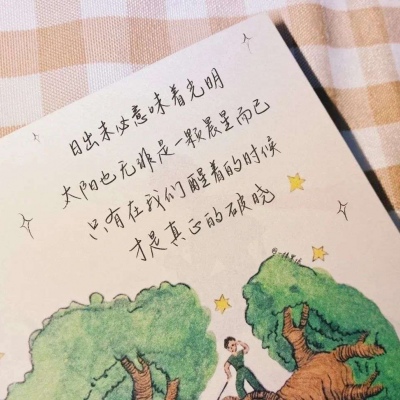 日出未必意味着光明
太阳也无非是一颗晨星而已
只有在我们醒着的时候
才是真正的破晓